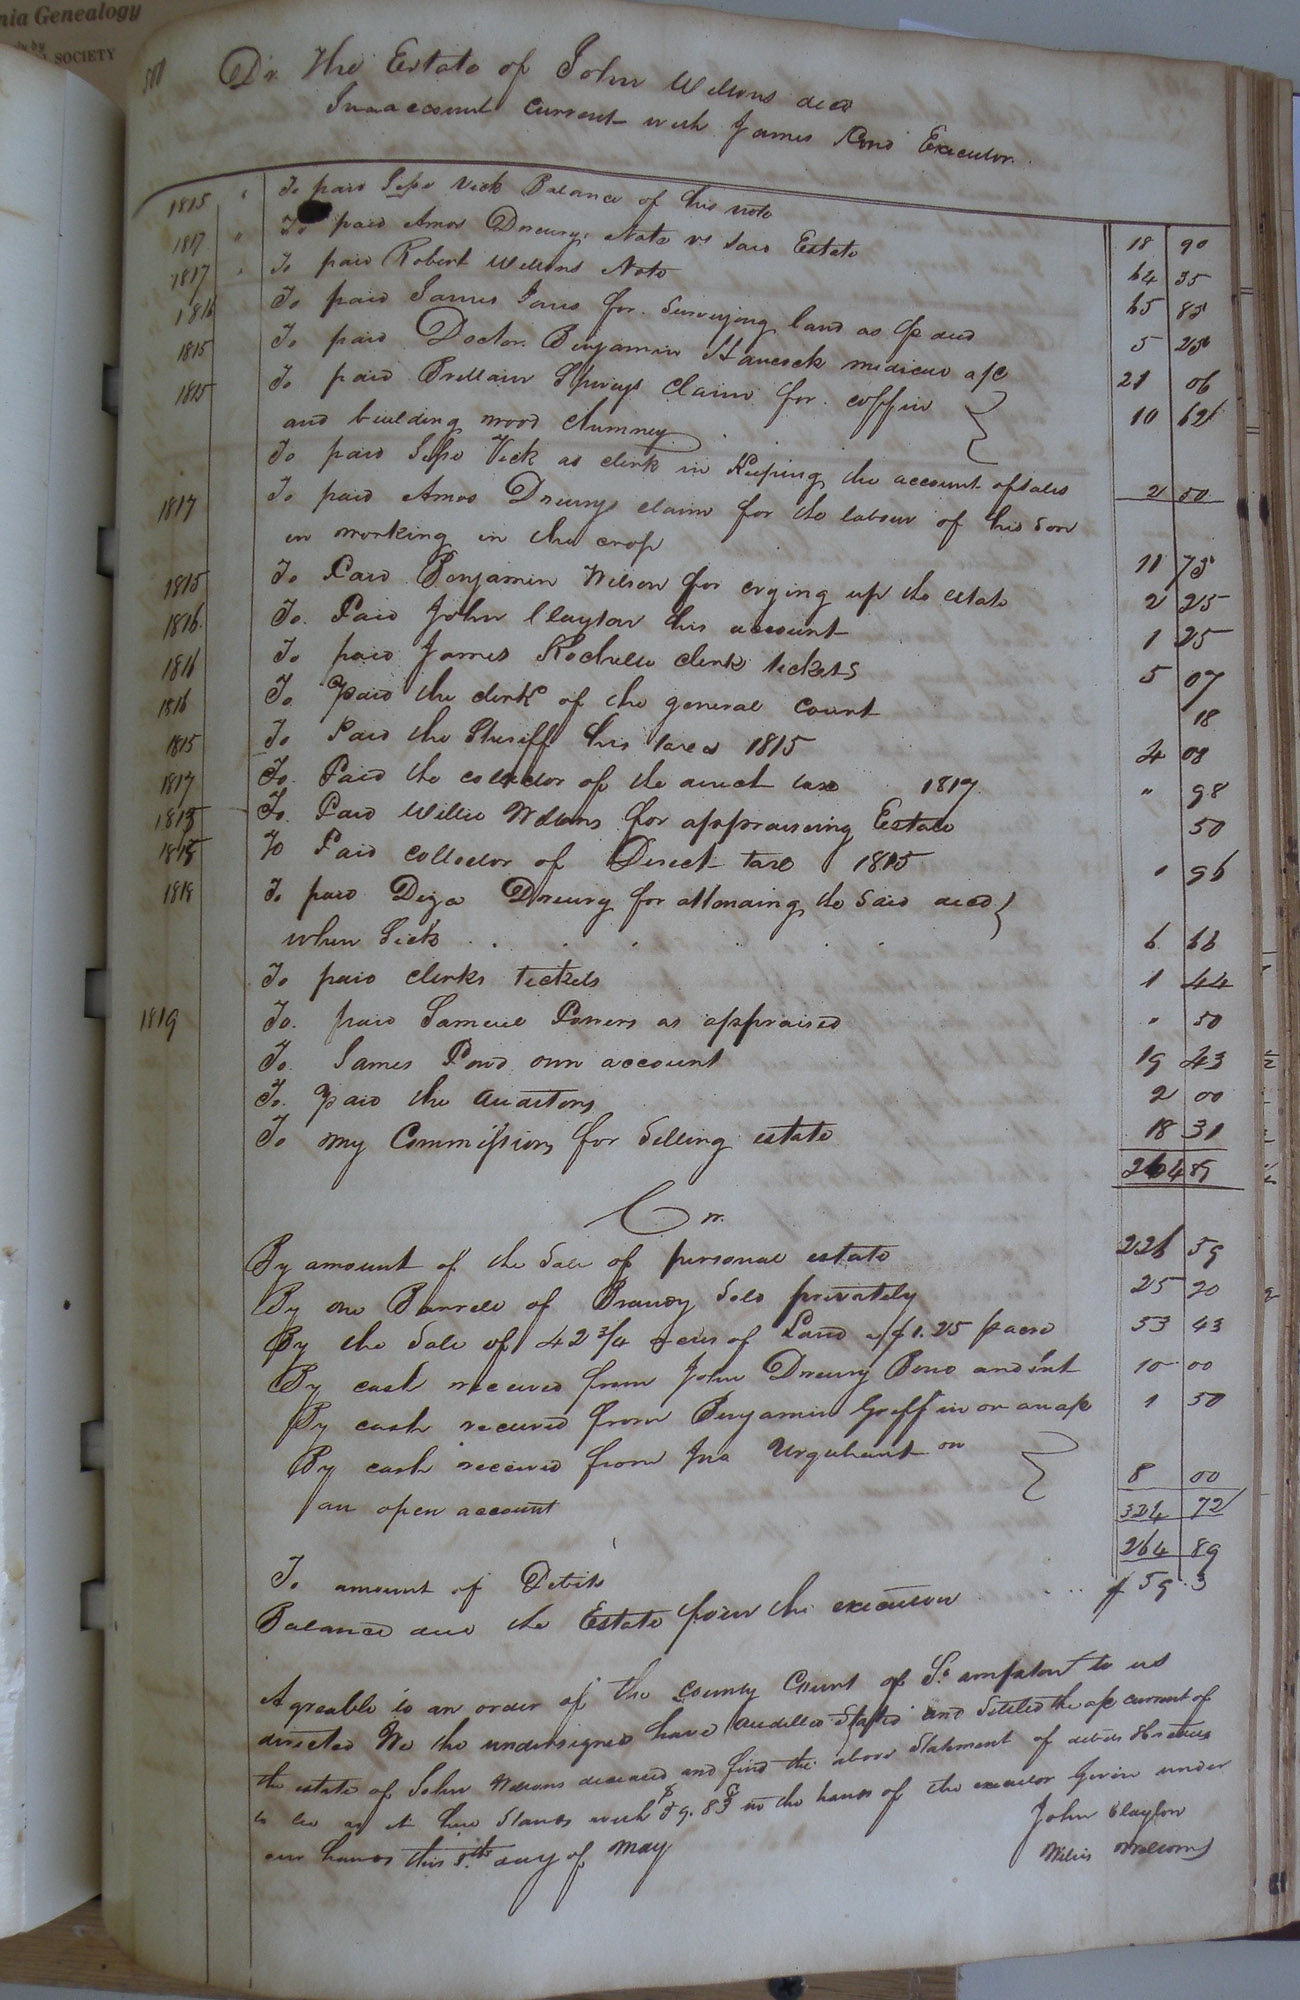 nia Genealogy
SOCIETY
Dr. The Estate of John Wellons decd
In account current with James Pond Executor.
1815 " To paid Jesse Vick Balance of his note 18 90
1817 " To paid Amos Drewrys Note vs said Estate 64 35
1817 " To paid Robert Wellons Note 65 85
1816 To paid James Jones for surveying land as p deed 5 25
1815 To paid Doctor Benjamin Hancock medical a/c 21 06
1815 To paid Brittain Spiveys claim for coffin
and building wood chimney 10 62
To paid Jesse Vick as clerk in Keeping the account of sales 2 50
1817 To paid Amos Drewrys claim for the labour of his son
in working in the crop 11 75
1815 To Paid Benjamin Wilson for crying up the estate 2 25
1816 To Paid John Clayton his account 1 25
1816 To paid James Rochelle clerk tickets 5 07
1816 To paid the clerk of the general court 18
1815 To Paid the Sheriff his taxes 1815 4 08
1817 To Paid the collector of the direct tax 1817 " 98
1815 To Paid Willie Wellons for appraiseing Estate 50
1815 To Paid collector of Direct tax 1815 " 96
1818 To paid Diza Drewry for attending the said decd
when Sick 6 66
To paid clerks tickets 1 44
1819 To paid Samuel Powers as appraised " 50
To James Pond own account 19 43
To paid the Auditors 2 00
To my Commission for selling estate 18 31
264 89
Cr.
By amount of the Sale of personal estate 226 59
By one Barrell of Brandy sold privately 25 20
By the Sale of 42 3/4 acres of Land a $1.25 p acre 53 43
By cash received from John Drewry Bond and Int 10 00
By cash received from Benjamin Griffin on an a/c 1 50
By cash received from Jno Urquhart on
an open account 8 00
324 72
To amount of Debits 264 89
Balance due the Estate from the executor $ 59.3
Agreable to an order of the County Court of So ampton to us
directed We the undersigned have audited stated and settled the a/c current of
the estate of John Wellons deceased and find the above Statement of debits & credits
to be as it here stands with $59.83 in the hands of the executor Given under
our hands this 8.th day of May
John Clayton
Willis Wellons